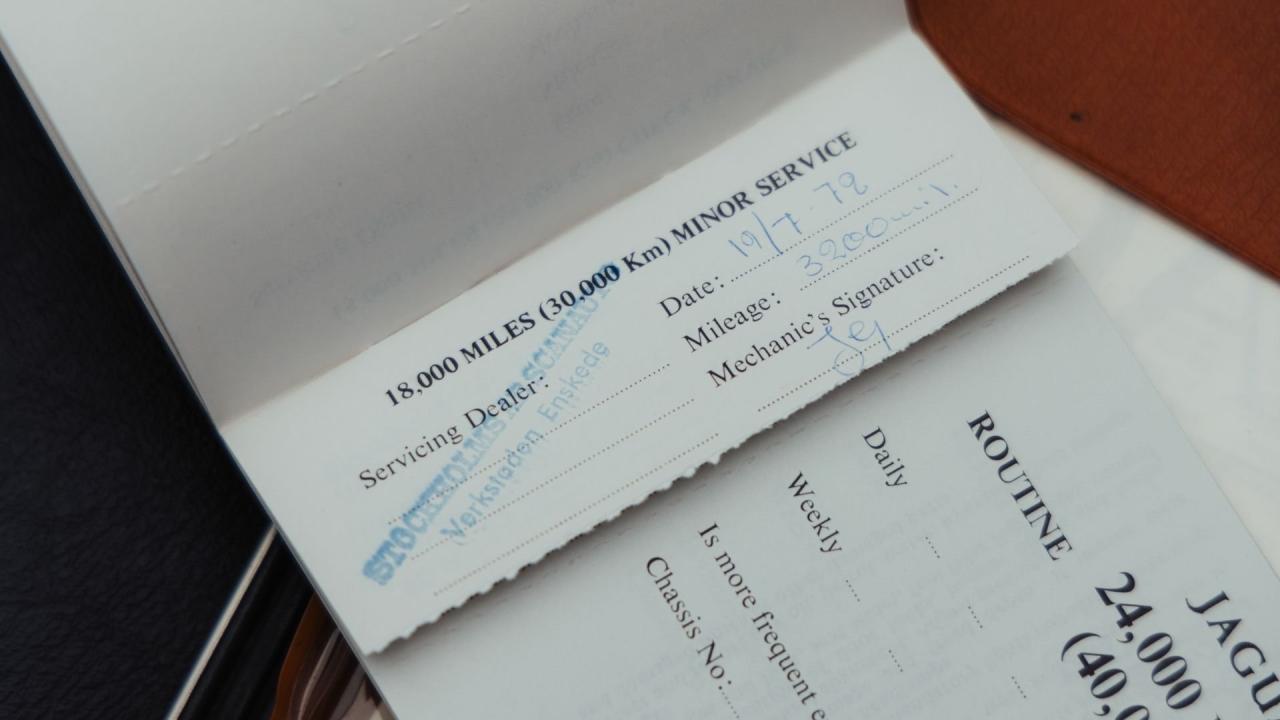 18,000 MILES (30,000 Km) MINOR SERVICE
Servicing Dealer:
STOCKHOLMS
Verkstaden Enskede
Date: 19/7-72
Mileage: 3200 mil.
Mechanic's Signature:
JAGU
24,000
(40,0
ROUTINE
Daily
Weekly
Is more frequent e
Chassis No: